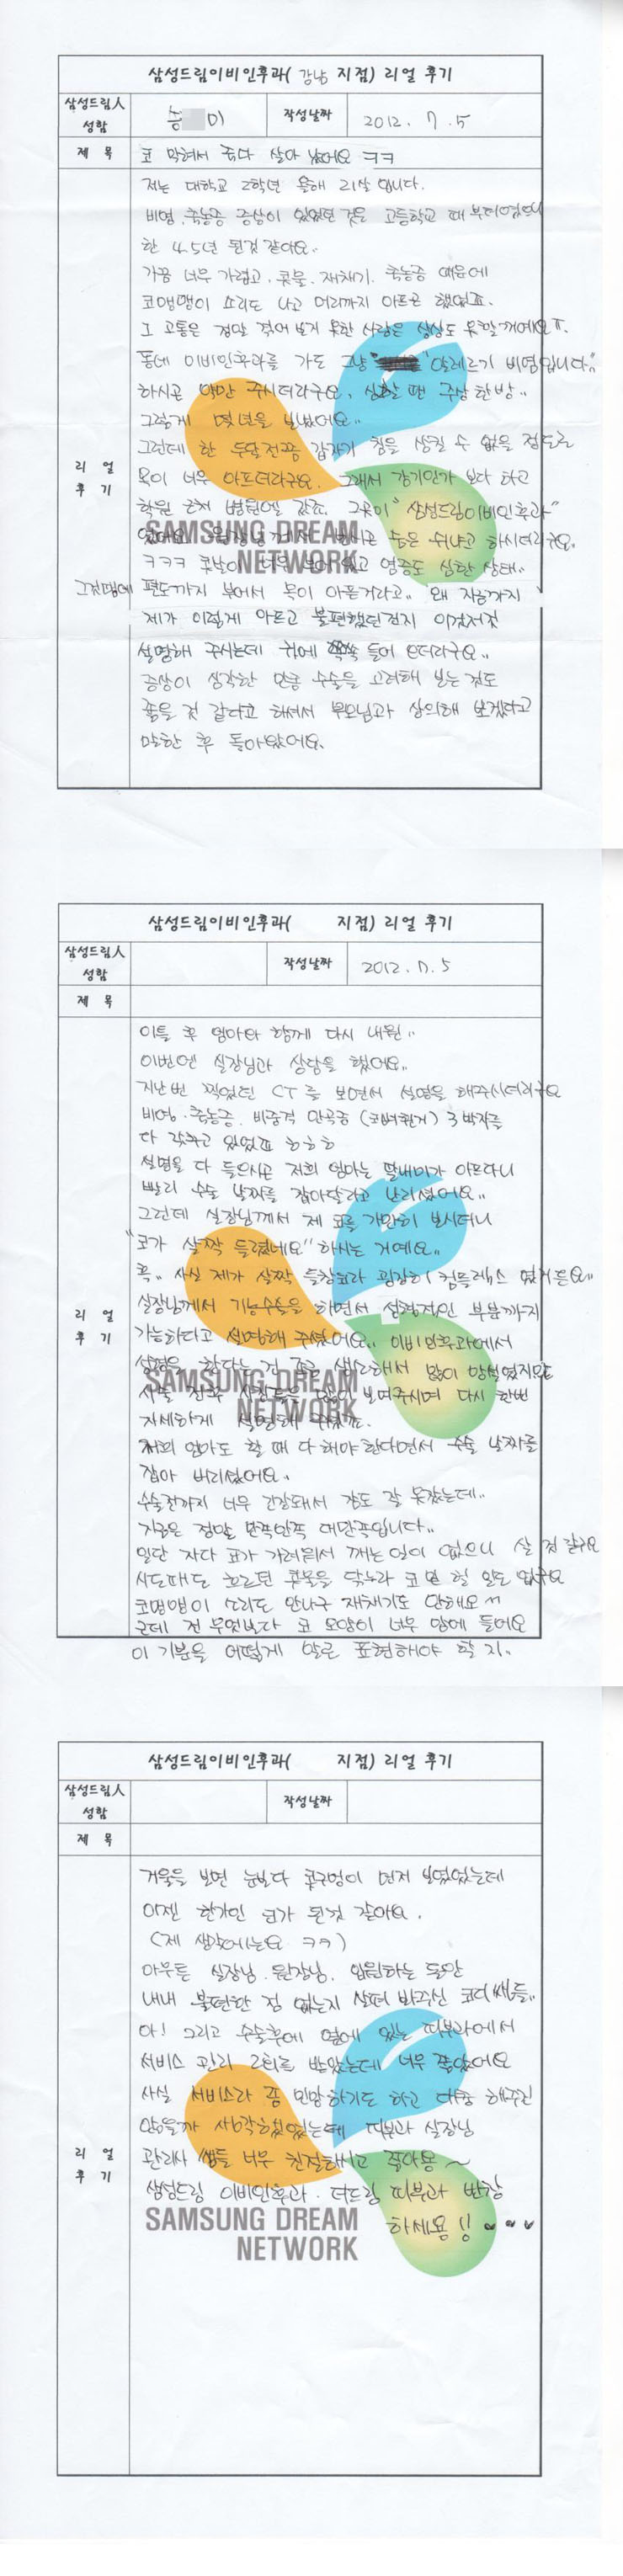 삼성드림이비인후과( 강남 지점) 리얼 후기
삼성드림人 성함
미
작성날짜
2012. 7. 5
제 목
코 막혀서 죽다 살아 났어요 ㅋㅋ
리 얼 후 기
저는 대학교 2학년 올해 21살 입니다.
비염, 축농증 증상이 있었던 것은 고등학교 때 부터였으니
한 4.5년 된것 같아요..
가끔 너무 가렵고, 콧물, 재채기, 축농증 때문에
코맹맹이 소리도 나고 머리까지 아프곤 했었죠.
그 고통은 정말 겪어 보지 못한 사람은 상상도 못할꺼예요ㅠ.
동네 이비인후과를 가도 그냥 "알레르기 비염입니다"
하시곤 약만 주시더라구요. 심할 땐 주사한방..
그렇게 몇년을 보냈어요..
그런데 한 두달전쯤 갑자기 침을 삼킬 수 없을 정도로
목이 너무 아프더라구요. 그래서 감기인가 보다 하고
학원 근처 병원엘 갔죠. 그곳이 "삼성드림이비인후과"
였어요. 원장님께서 보시곤 숨은 쉬냐고 하시더라구요.
ㅋㅋㅋ 콧살이 너무 부어 있고 염증도 심한 상태..
그것땜에 편도까지 부어서 목이 아픈거라고.. 왜 지금까지
제가 이렇게 아프고 불편했던건지 이것저것
설명해 주시는데 귀에 쏙쏙 들어 오더라구요..
증상이 심각한 만큼 수술을 고려해 보는 것도
좋을 것 같다고 하셔서 부모님과 상의해 보겠다고
말한 후 돌아왔어요.
SAMSUNG DREAM
NETWORK
삼성드림이비인후과( 지점) 리얼 후기
삼성드림人 성함
작성날짜
2012. 7. 5
제 목
리 얼 후 기
이틀 후 엄마와 함께 다시 내원..
이번엔 실장님과 상담을 했어요..
지난번 찍었던 CT를 보면서 설명을 해주시더라구요
비염. 축농증. 비중격 만곡증 (코뼈휜거) 3박자를
다 갖추고 있었죠 ㅎㅎㅎ
설명을 다 들으시곤 저희 엄마는 딸내미가 아프다니
빨리 수술 날짜를 잡아달라고 난리셨어요..
그런데 실장님께서 제 코를 가만히 보시더니
"코가 살짝 들렸네요" 하시는 거예요..
헉.. 사실 제가 살짝 들창코라 굉장히 컴플렉스 였거든요..
실장님께서 기능수술을 하면서 성형적인 부분까지
가능하다고 설명해 주셨어요.. 이비인후과에서
성형을 한다는 건 조금 생소해서 많이 망설였지만
시술 전후 사진들을 많이 보여주시며 다시 한번
자세하게 설명해 주셨죠.
저희 엄마도 할 때 다 해야한다면서 수술 날짜를
잡아 버리셨어요.
수술전까지 너무 긴장돼서 잠도 잘 못잤는데..
지금은 정말 만족만족 대만족입니다..
일단 자다 코가 가려워서 깨는 일이 없으니 살 것 같구요
시도때도 흐르던 콧물을 닦느라 코 헐 일도 없구요
코맹맹이 소리도 안나구 재채기도 덜해요 ^^
근데 전 무엇보다 코 모양이 너무 맘에 들어요
이 기분을 어떻게 말로 표현해야 할지..
SAMSUNG DREAM
NETWORK
삼성드림이비인후과( 지점) 리얼 후기
삼성드림人 성함
작성날짜
제 목
리 얼 후 기
거울을 보면 눈보다 콧구멍이 먼저 보였었는데
이젠 한가인 코가 된것 같아요.
(제 생각에는요 ㅋㅋ)
아무튼 실장님. 원장님. 입원하는 동안
내내 불편한 점 없는지 살펴 봐주신 코디쌤들..
아! 그리고 수술후에 옆에 있는 피부과에서
서비스 관리 2회를 받았는데 너무 좋았어요
사실 서비스라 좀 민망하기도 하고 대충 해주진
않을까 사실 생각했었는데 피부과 실장님
관리사 쌤들 너무 친절하시고 좋아용~
삼성드림 이비인후과. 더드림 피부과 번창
하세용!! ♥♥♥
SAMSUNG DREAM
NETWORK